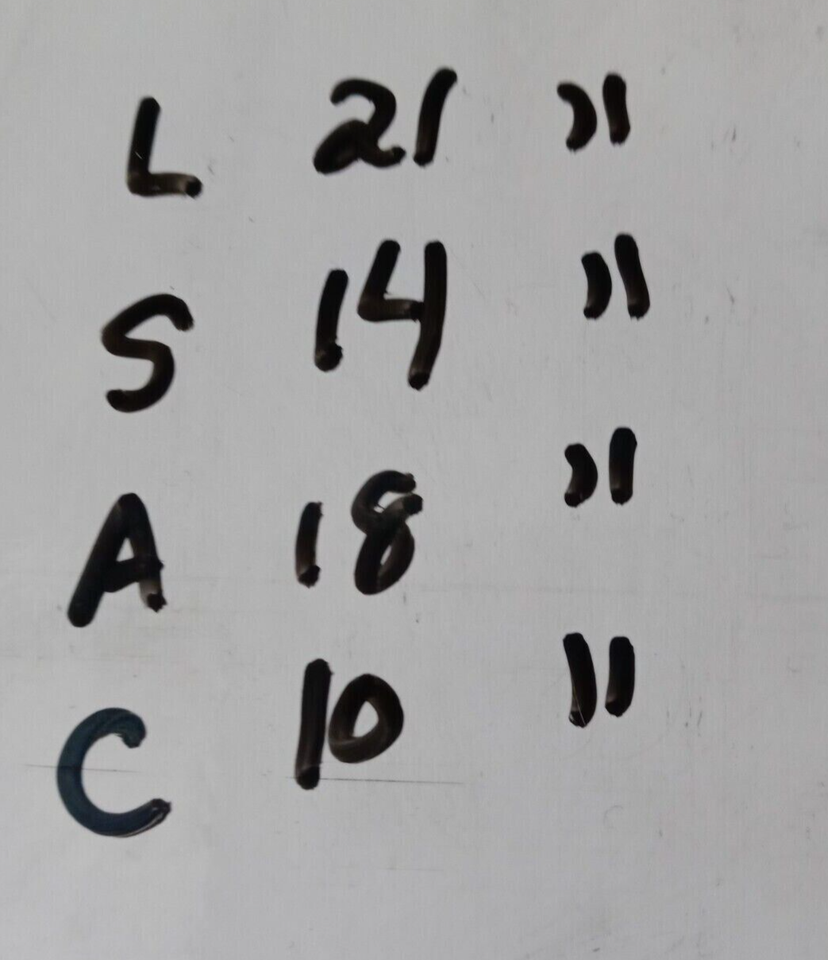 L 21 "
S 14 "
A 18 "
C 10 "